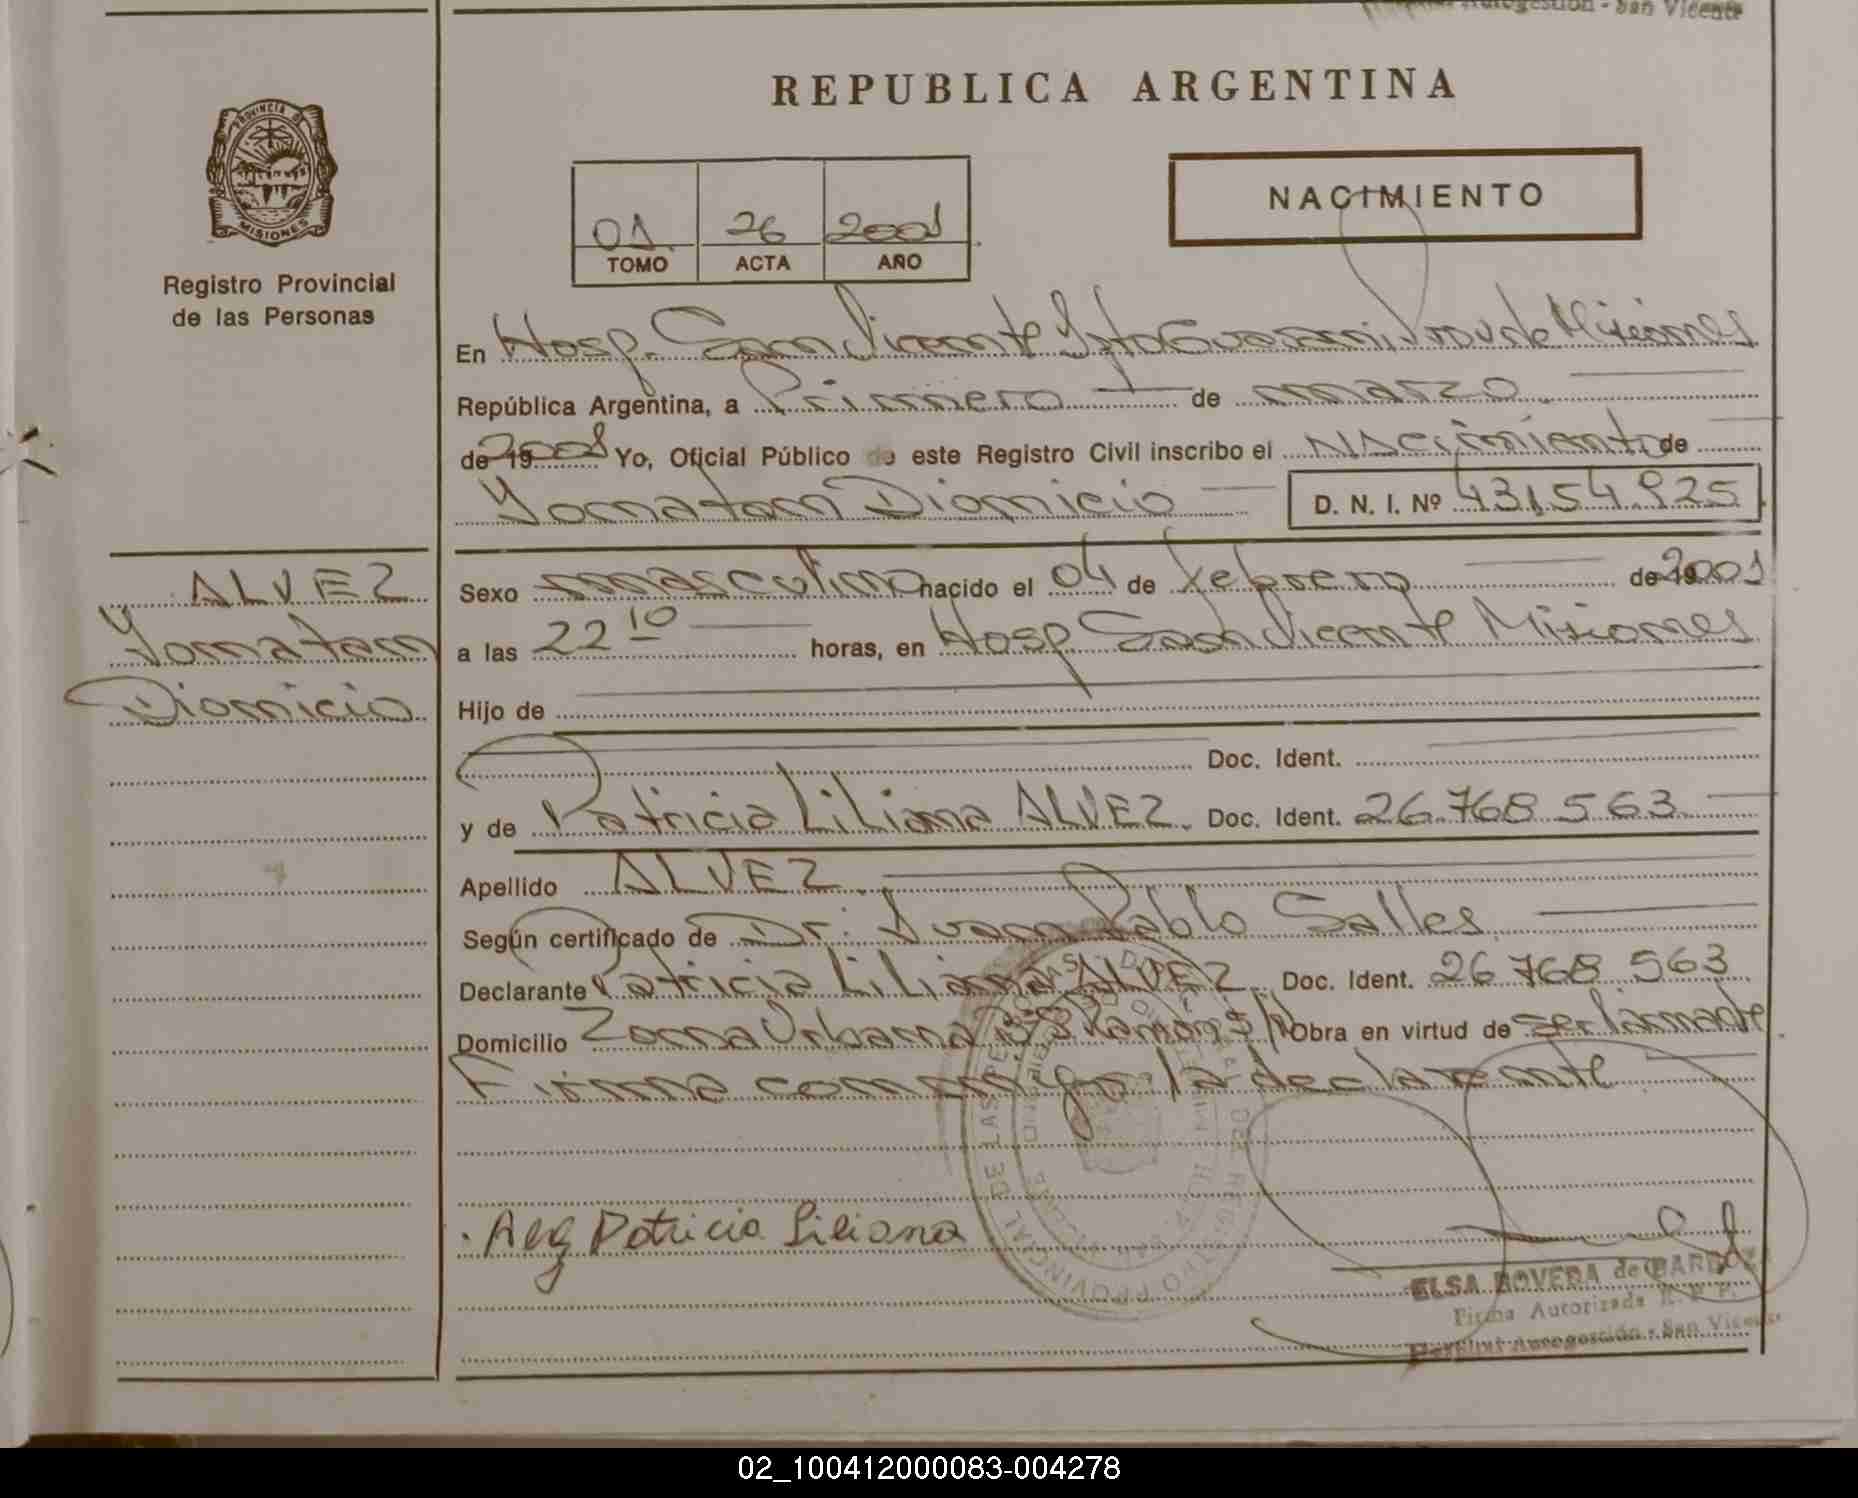 Autogestión - San Vicente
REPUBLICA ARGENTINA
PROVINCIA DE
MISIONES
Registro Provincial
de las Personas
01 26 2001
TOMO ACTA AÑO
NACIMIENTO
En Hosp. San Vicente Dpto Guarani, Prov de Misiones
República Argentina, a Primero de marzo
de 19 2001 Yo, Oficial Público de este Registro Civil inscribo el Nacimiento de
Yonatan Dionicio D. N. I. Nº 43.154.925
ALVEZ
Yonatan
Dionicio
Sexo masculino nacido el 04 de febrero de 19 2001
a las 22 10 horas, en Hosp San Vicente Misiones
Hijo de
Doc. Ident.
y de Patricia Liliana ALVEZ. Doc. Ident. 26.768.563
Apellido ALVEZ
Según certificado de Dr. Juan Pablo Salles
Declarante Patricia Liliana ALVEZ Doc. Ident. 26 768 563
Domicilio Zona Urbana Bº S Ramón S/Nº Obra en virtud de ser la madre
Firma conmigo la declarante
Patricia Liliana
ELSA BOVEDA de
Firma Autorizada R. P. P.
Hospital Autogestión - San Vicente
02_100412000083-004278